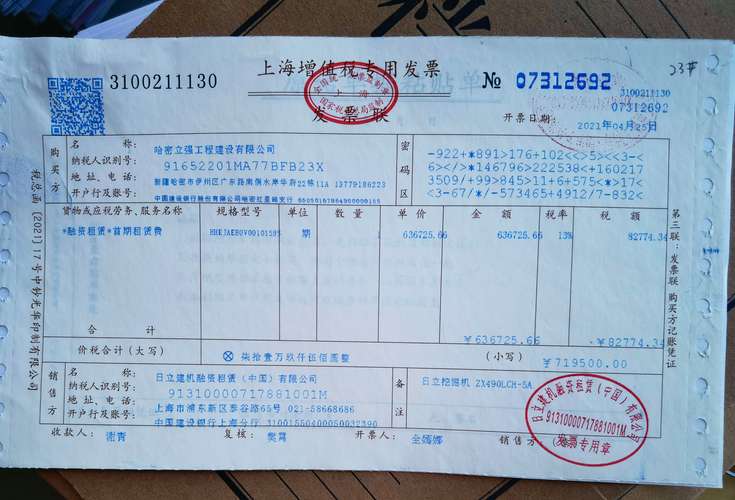 3100211130
上海增值税专用发票
发票联
№ 07312692
3100211130
07312692
23#
开票日期: 2021年04月25日
全国统一发票监制章
上海
国家税务总局监制
税总函(2021)17号中钞光华印制有限公司
购买方
名称: 哈密立强工程建设有限公司
纳税人识别号: 91652201MA77BFB23X
地址、电话: 新疆哈密市伊州区广东路南侧水岸华府22栋11A 13779186223
开户行及账号: 中国建设银行股份有限公司哈密红星路支行
密码区
-922+*891>176+102<<>5><<3-<
6></>*146796>222538<+160217
3509/+99>845>11+6+575<*>17<
<3-67/*/-573465+4912/7-832<
货物或应税劳务、服务名称 规格型号 单位 数量 单价 金额 税率 税额
*融资租赁*首期租赁费 期 1 636725.66 636725.66 13% 82774.34
合计 ¥636725.66 ¥82774.34
价税合计(大写) ⊗柒拾壹万玖仟伍佰圆整 (小写) ¥719500.00
销售方
名称: 日立建机融资租赁(中国)有限公司
纳税人识别号: 91310000717881001M
地址、电话: 上海市浦东新区泰谷路65号 021-58668686
开户行及账号: 中国建设银行上海分行 31001550400050032390
备注
日立挖掘机 ZX490LCH-5A
收款人: 谢青 复核: 开票人: 金嫣娜 销售方:
日立建机融资租赁(中国)有限公司
91310000717881001M
发票专用章
第三联:发票联 购买方记账凭证